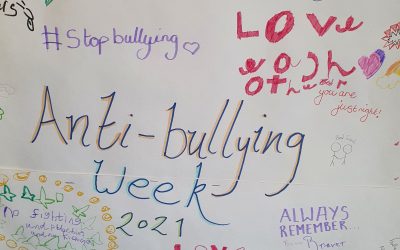 #Stopbullying
Love
each
other
you are
just right!
Anti-bullying
Week
2021
No fighting
ALWAYS
REMEMBER...
Love